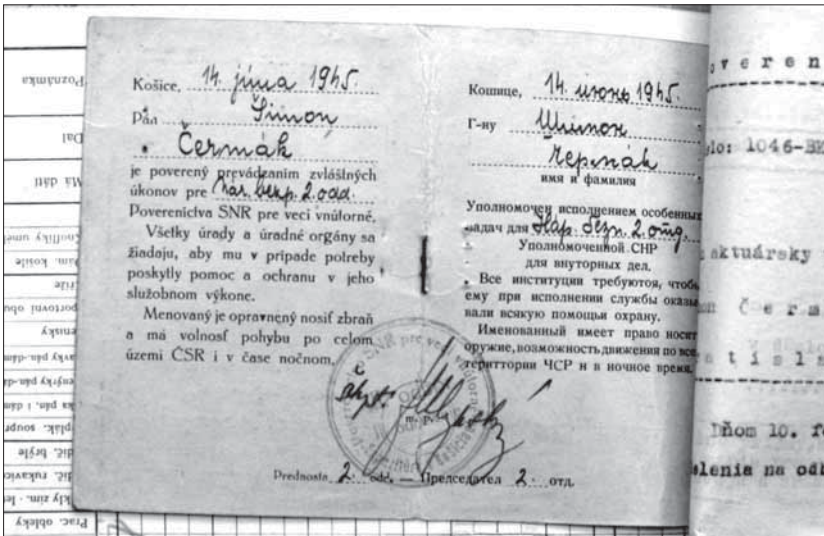 Košice, 14. júna 1945.
Pán Šimon
Čermák
je poverený prevádzaním zvláštnych
úkonov pre Nár. bezp. 2. odd.
Povereníctva SNR pre veci vnútorné.
Všetky úrady a úradné orgány sa
žiadajú, aby mu v prípade potreby
poskytly pomoc a ochranu v jeho
služobnom výkone.
Menovaný je oprávnený nosiť zbraň
a má voľnosť pohybu po celom
území ČSR i v čase nočnom.
Prednosta 2. odd. — Председател 2. отд.
Кошице, 14. июнь 1945.
Г-ну Шимон
Чермák
имя и фамилия
Уполномочен исполнением особенных
задач для Нар. безп. 2. отд.
Уполномоченой СНР
для внуторных дел.
Все институции требуются, чтобь
ему при исполнении службы оказы
вали всякую помощьи охрану.
Именованный имеет право носит
оружие, возможность движения по все
територтории ЧСР н в ночное время.
overen
lo: 1046-BE
aktuársky
on čerm
atisl
Dňom 10. fe
elenia na odb
Poznámka
Dal
Má dáti
Knoflíky uměl
Dám. košile
Příze
portovní obu
ensky
avky pán-dám
enýrky pán-dá
ka pán. i dám
plák. soupr
dič. brýle
dič. rukavic
kly zim. - let
Prac. obleky